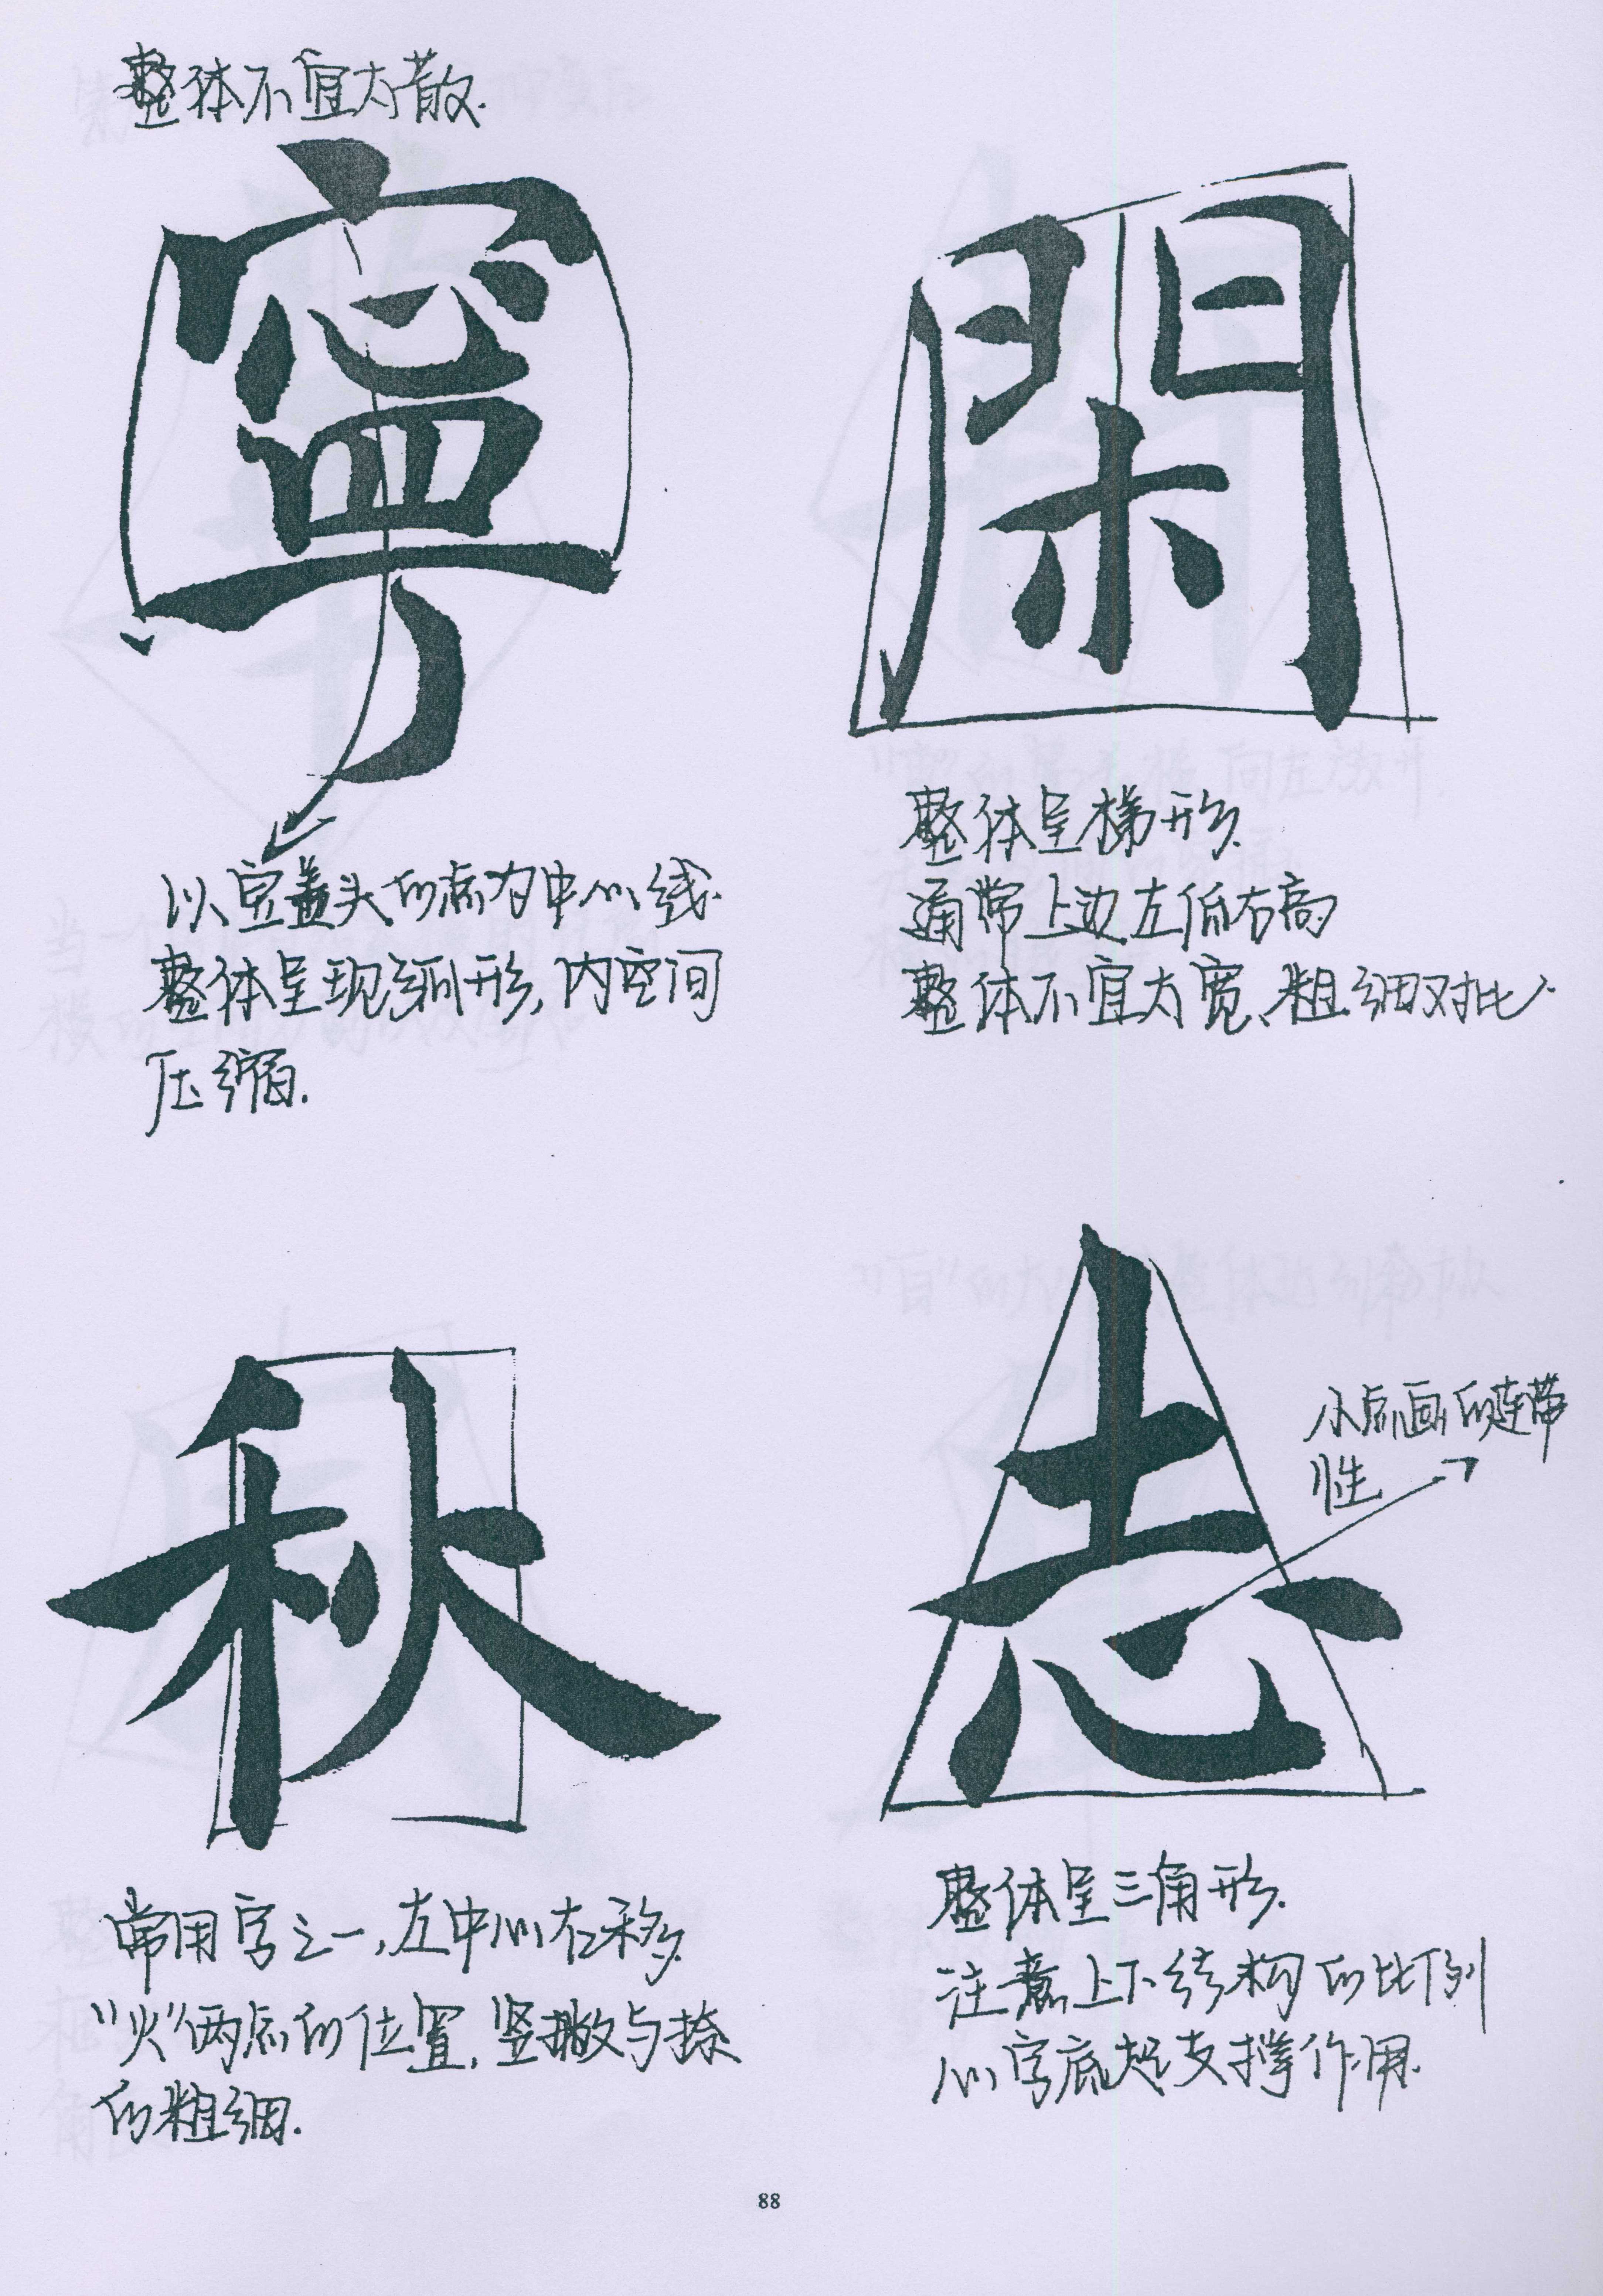 整体不宜太散.
寧
以宝盖头的点为中心线.
整体呈现弧形,内空间
压缩.
閑
整体呈梯形.
通常上边左低右高
整体不宜太宽、粗细对比.
秋
常用字之一,左中心右移.
"火"两点的位置,竖撇与捺
的粗细.
志
小点画的连带
性
整体呈三角形.
注意上下结构的比例
心字底起支撑作用.
88